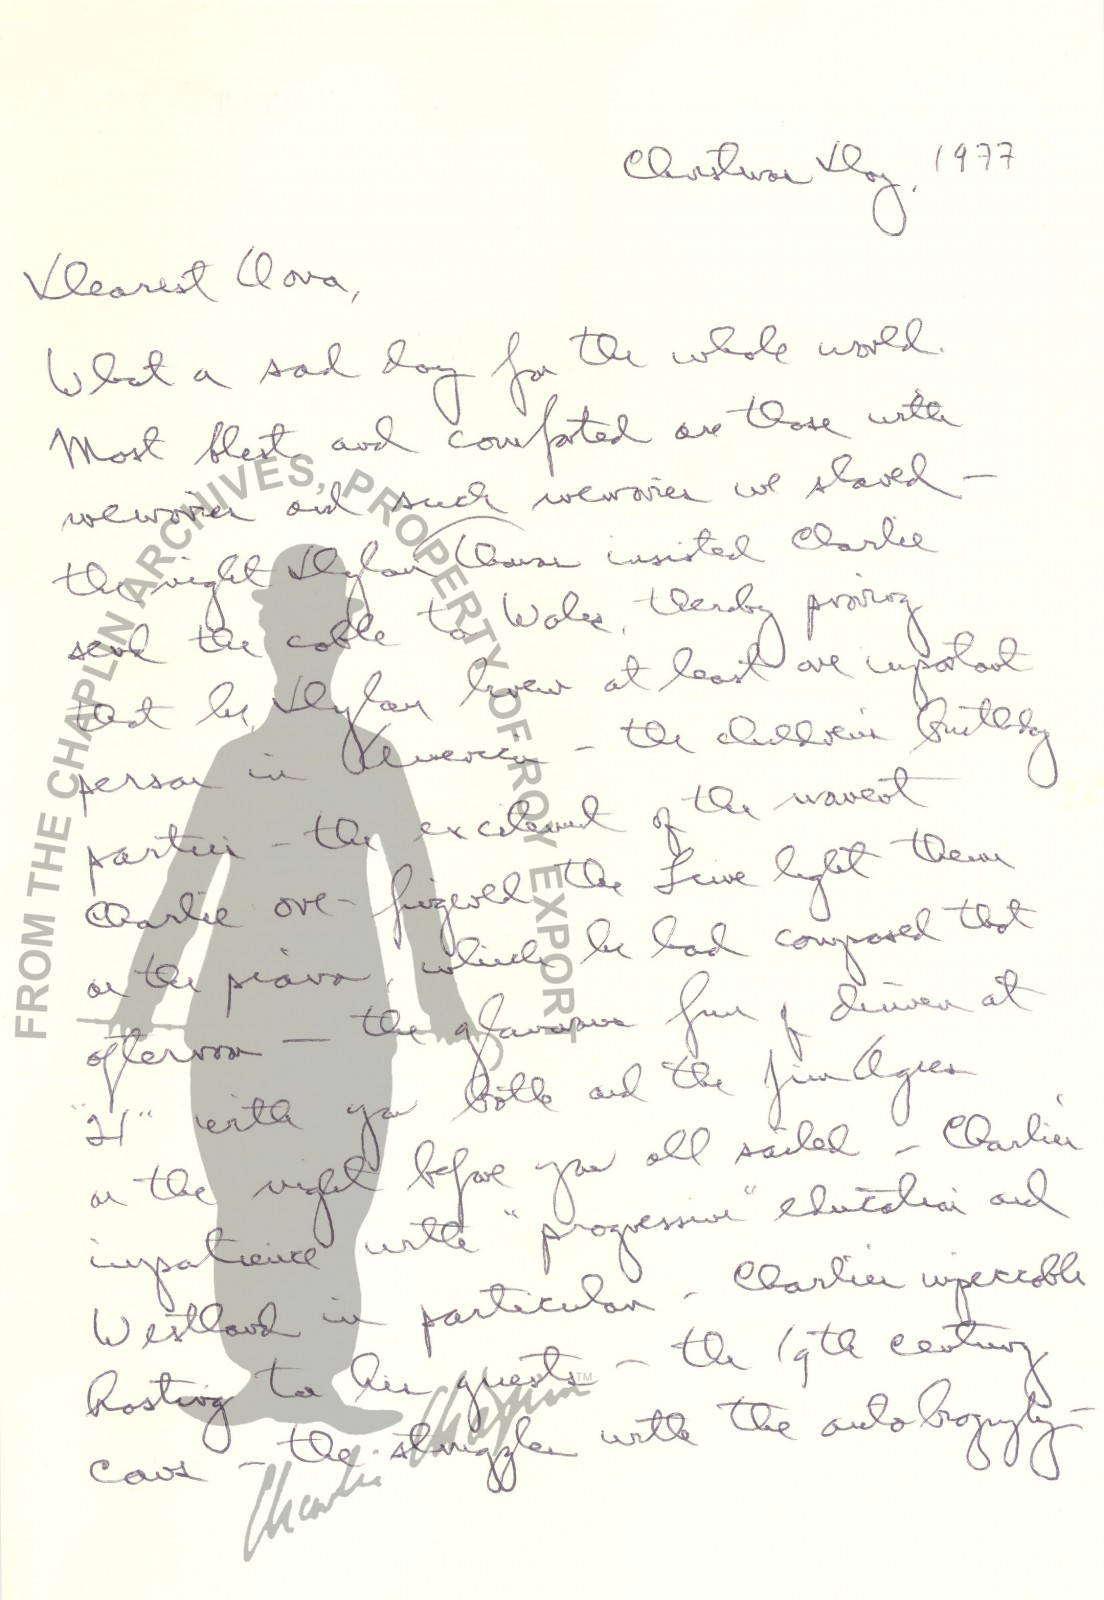 Christmas Day, 1977
Dearest Oona,
What a sad day for the whole world.
Most blest and comforted are those with
memories and such memories we shared –
the night Dylan Thomas insisted Charlie
send the cable to Wales, thereby proving
that he, Dylan knew at least one important
person in America – the children's birthday
parties – the excitement of the moment
Charlie one-fingered the Limelight theme
on the piano, which he had composed that
afternoon – the glamorous fun of dinner at
"21" with you both and the Jim Agees
on the night before you all sailed – Charlie's
impatience with "progressive" education and
Westland in particular – Charlie's impeccable
hosting to his guests – the 19th century
cows – the struggles with the autobiography –
FROM THE CHAPLIN ARCHIVES, PROPERTY OF ROY EXPORT
Charlie Chaplin™